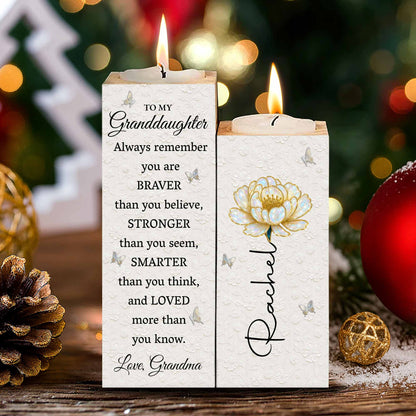 TO MY
Granddaughter
Always remember
you are
BRAVER
than you believe,
STRONGER
than you seem,
SMARTER
than you think,
and LOVED
more than
you know.
Love, Grandma
Rachel